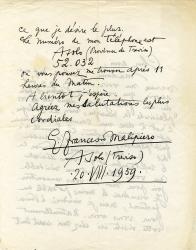 ce que je désire le plus.
Le numéro de mon téléphone est
Asolo (Province de Treviso)
52.032
où vous pouvez me trouver après 11
heures du matin.
A bientôt j'espère.
Agréez mes salutations les plus
cordiales
G. Francesco Malipiero
Asolo (Treviso)
20.VIII.1959.